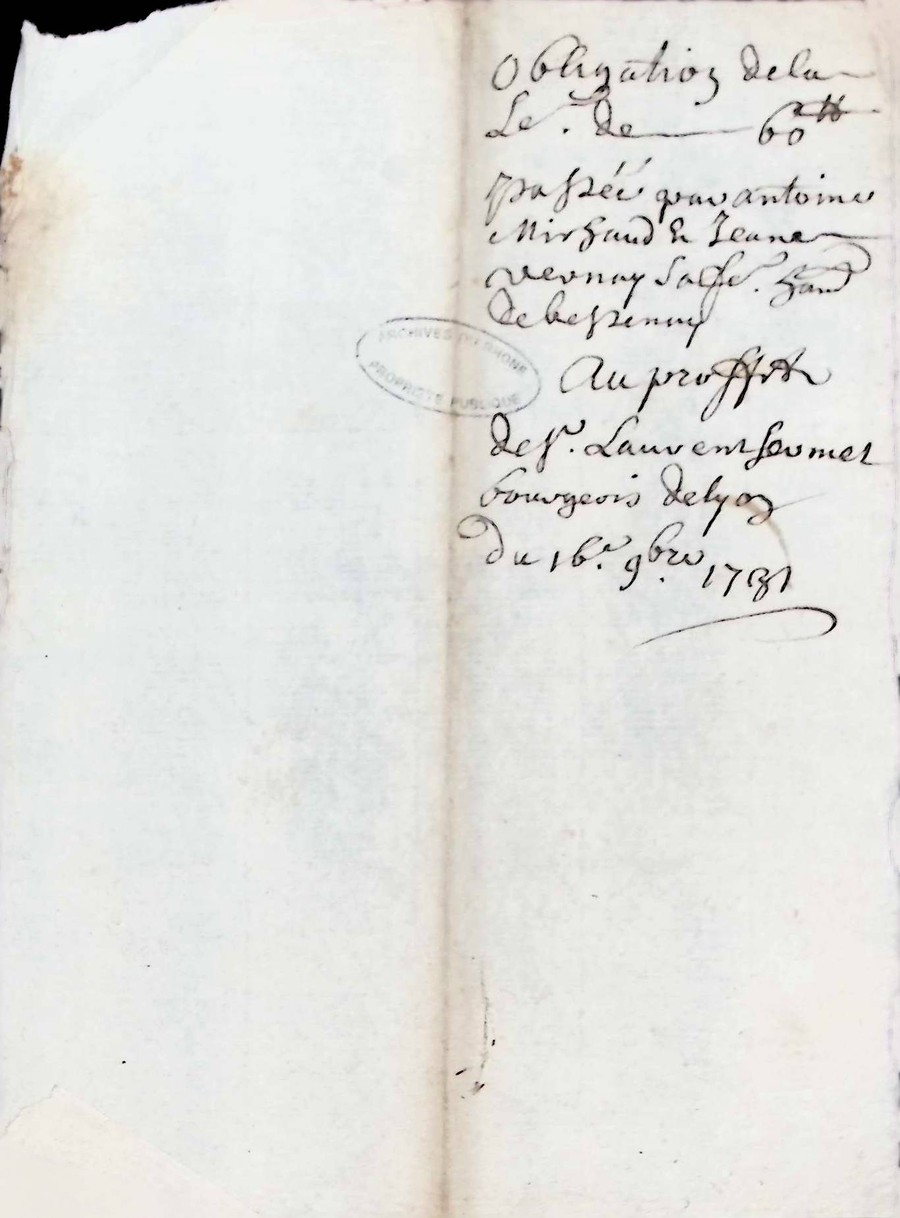 Obligation de la
Se. de 60 ₶
passéé par antoine
Michaud & Jeane
vernay sa fe.
de bessenay
Au proffit
de sr. Laurent
bourgeois de lyon
du 16e. 9bre 1731
ARCHIVES DU RHONE
PROPRIETE PUBLIQUE